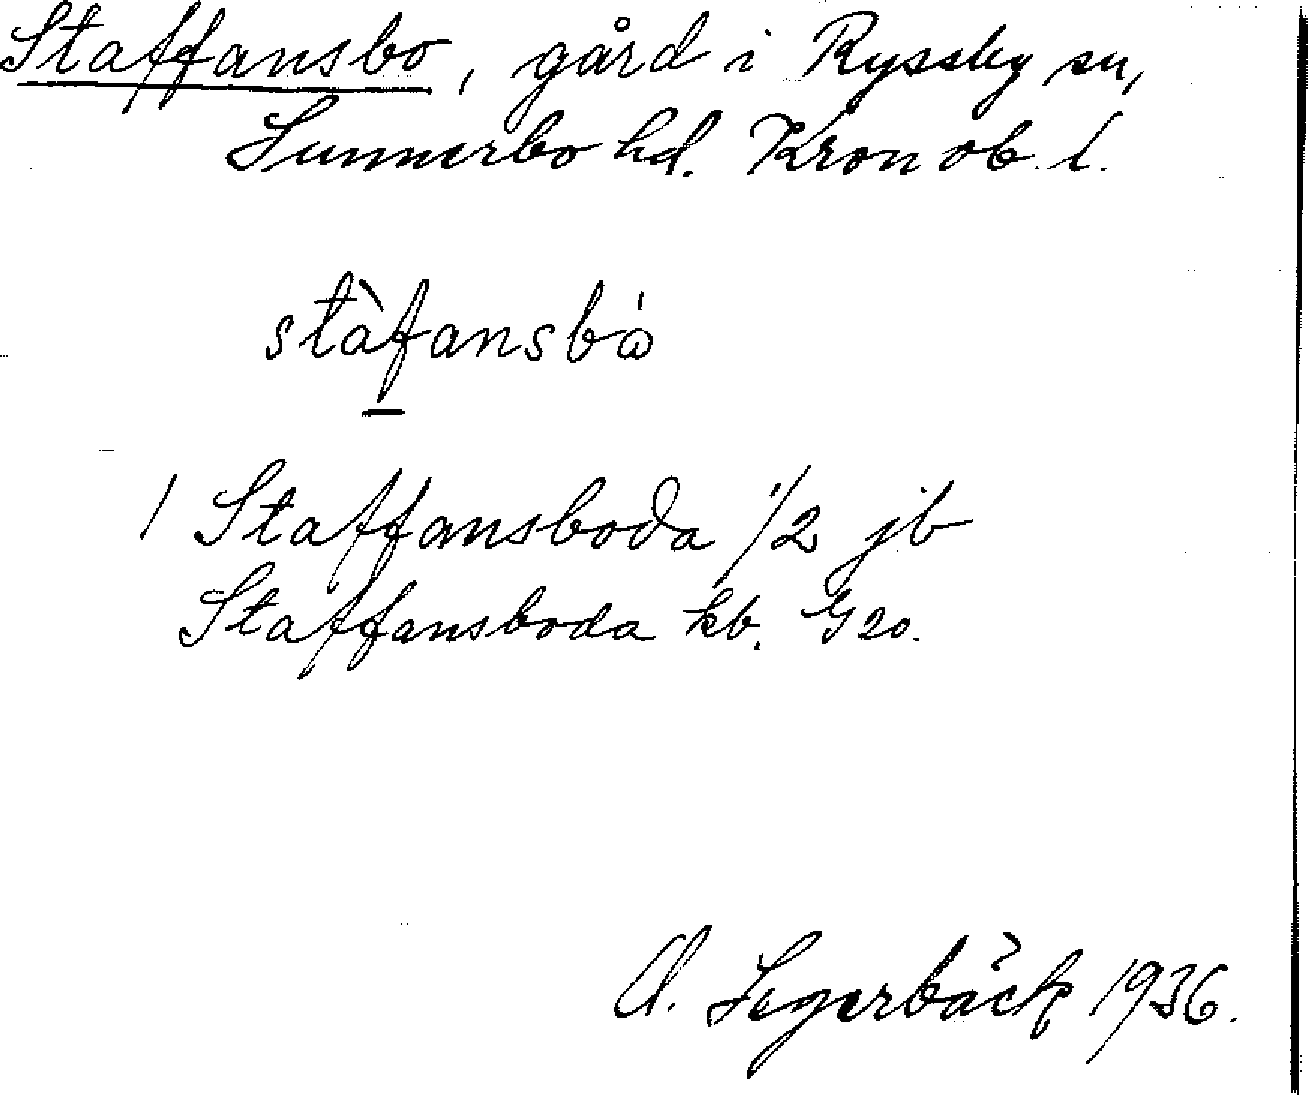 Staffansbo, gård i Ryssby sn,
Sunnerbo hd. Kronob. l.
stàfansbó
1 Staffansboda 1/2 jb
Staffansboda kb. G 20.
Segerbäck 1936.